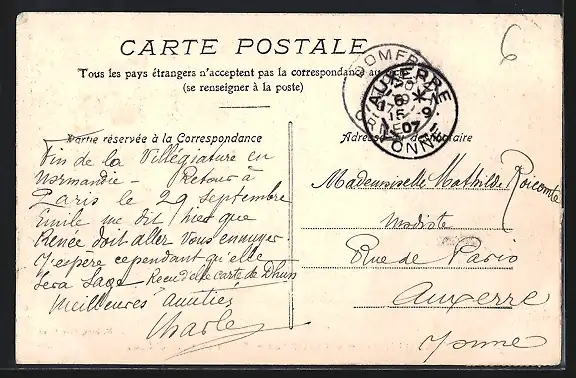 CARTE POSTALE
Tous les pays étrangers n'acceptent pas la correspondance au
(se renseigner à la poste)
6
DOMFR
AUXERRE
6
15 - 9
07
YONNE
Partie réservée à la Correspondance
Fin de la Villégiature en
Normandie - Retour à
Paris le 29 septembre
Emile me dit hier que
Renée doit aller vous ennuyer.
J'espère cependant qu'elle
Sera Sage Recu d'elle carte de
Meilleures amitiés
Charle
Adresse du destinataire
Mademoiselle Mathilde Roicomte
Modiste
Rue de Paris
Auxerre
Yonne